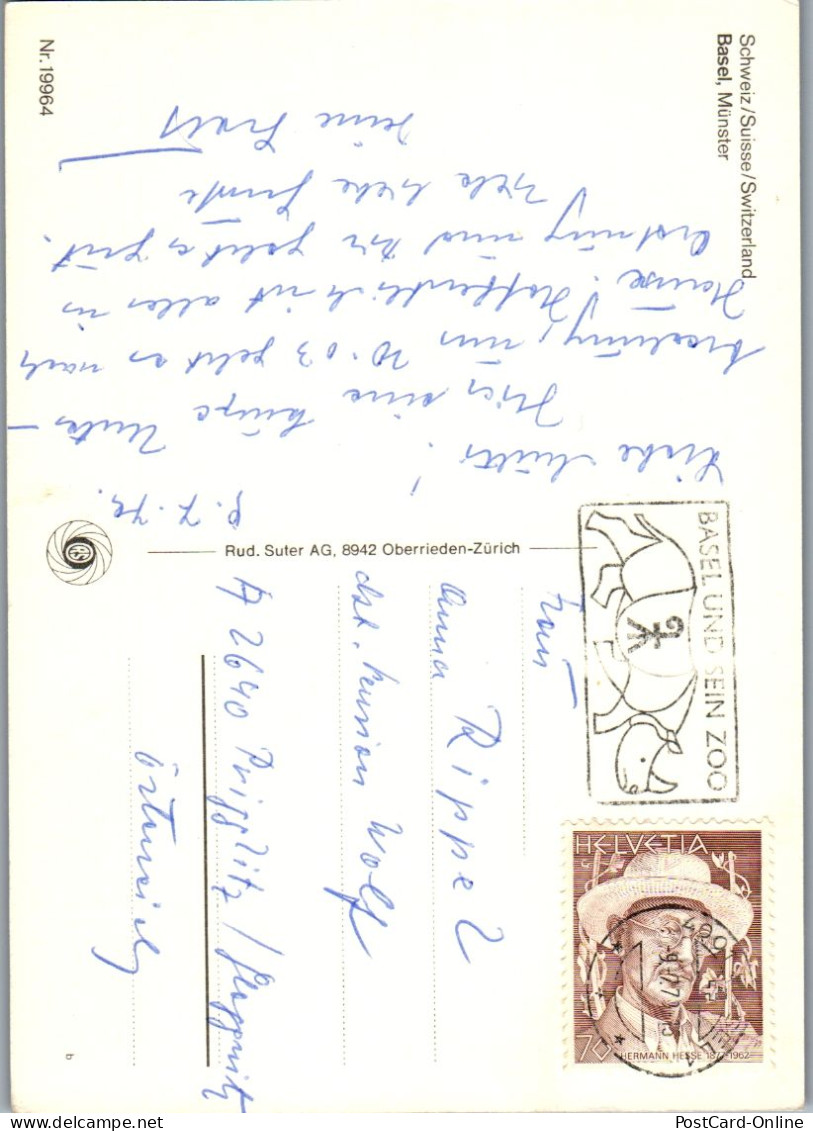 Schweiz/Suisse/Switzerland
Basel, Münster
Nr. 19964
8.7.79.
Liebe Mutter!
Hier eine kurze Unter-
brechung, um 10.03 geht es nach
Hause. Hoffentlich ist alles in
Ordnung und Dir geht es gut.
Viele liebe Grüße
Deine
Rud. Suter AG, 8942 Oberrieden-Zürich
Frau
Anna Rippel
Pension Wolf
A 2640 Prigglitz / Gloggnitz
Österreich
b
BASEL UND SEIN ZOO
HELVETIA
70
HERMANN HESSE 1877-1962
PostCard-Online